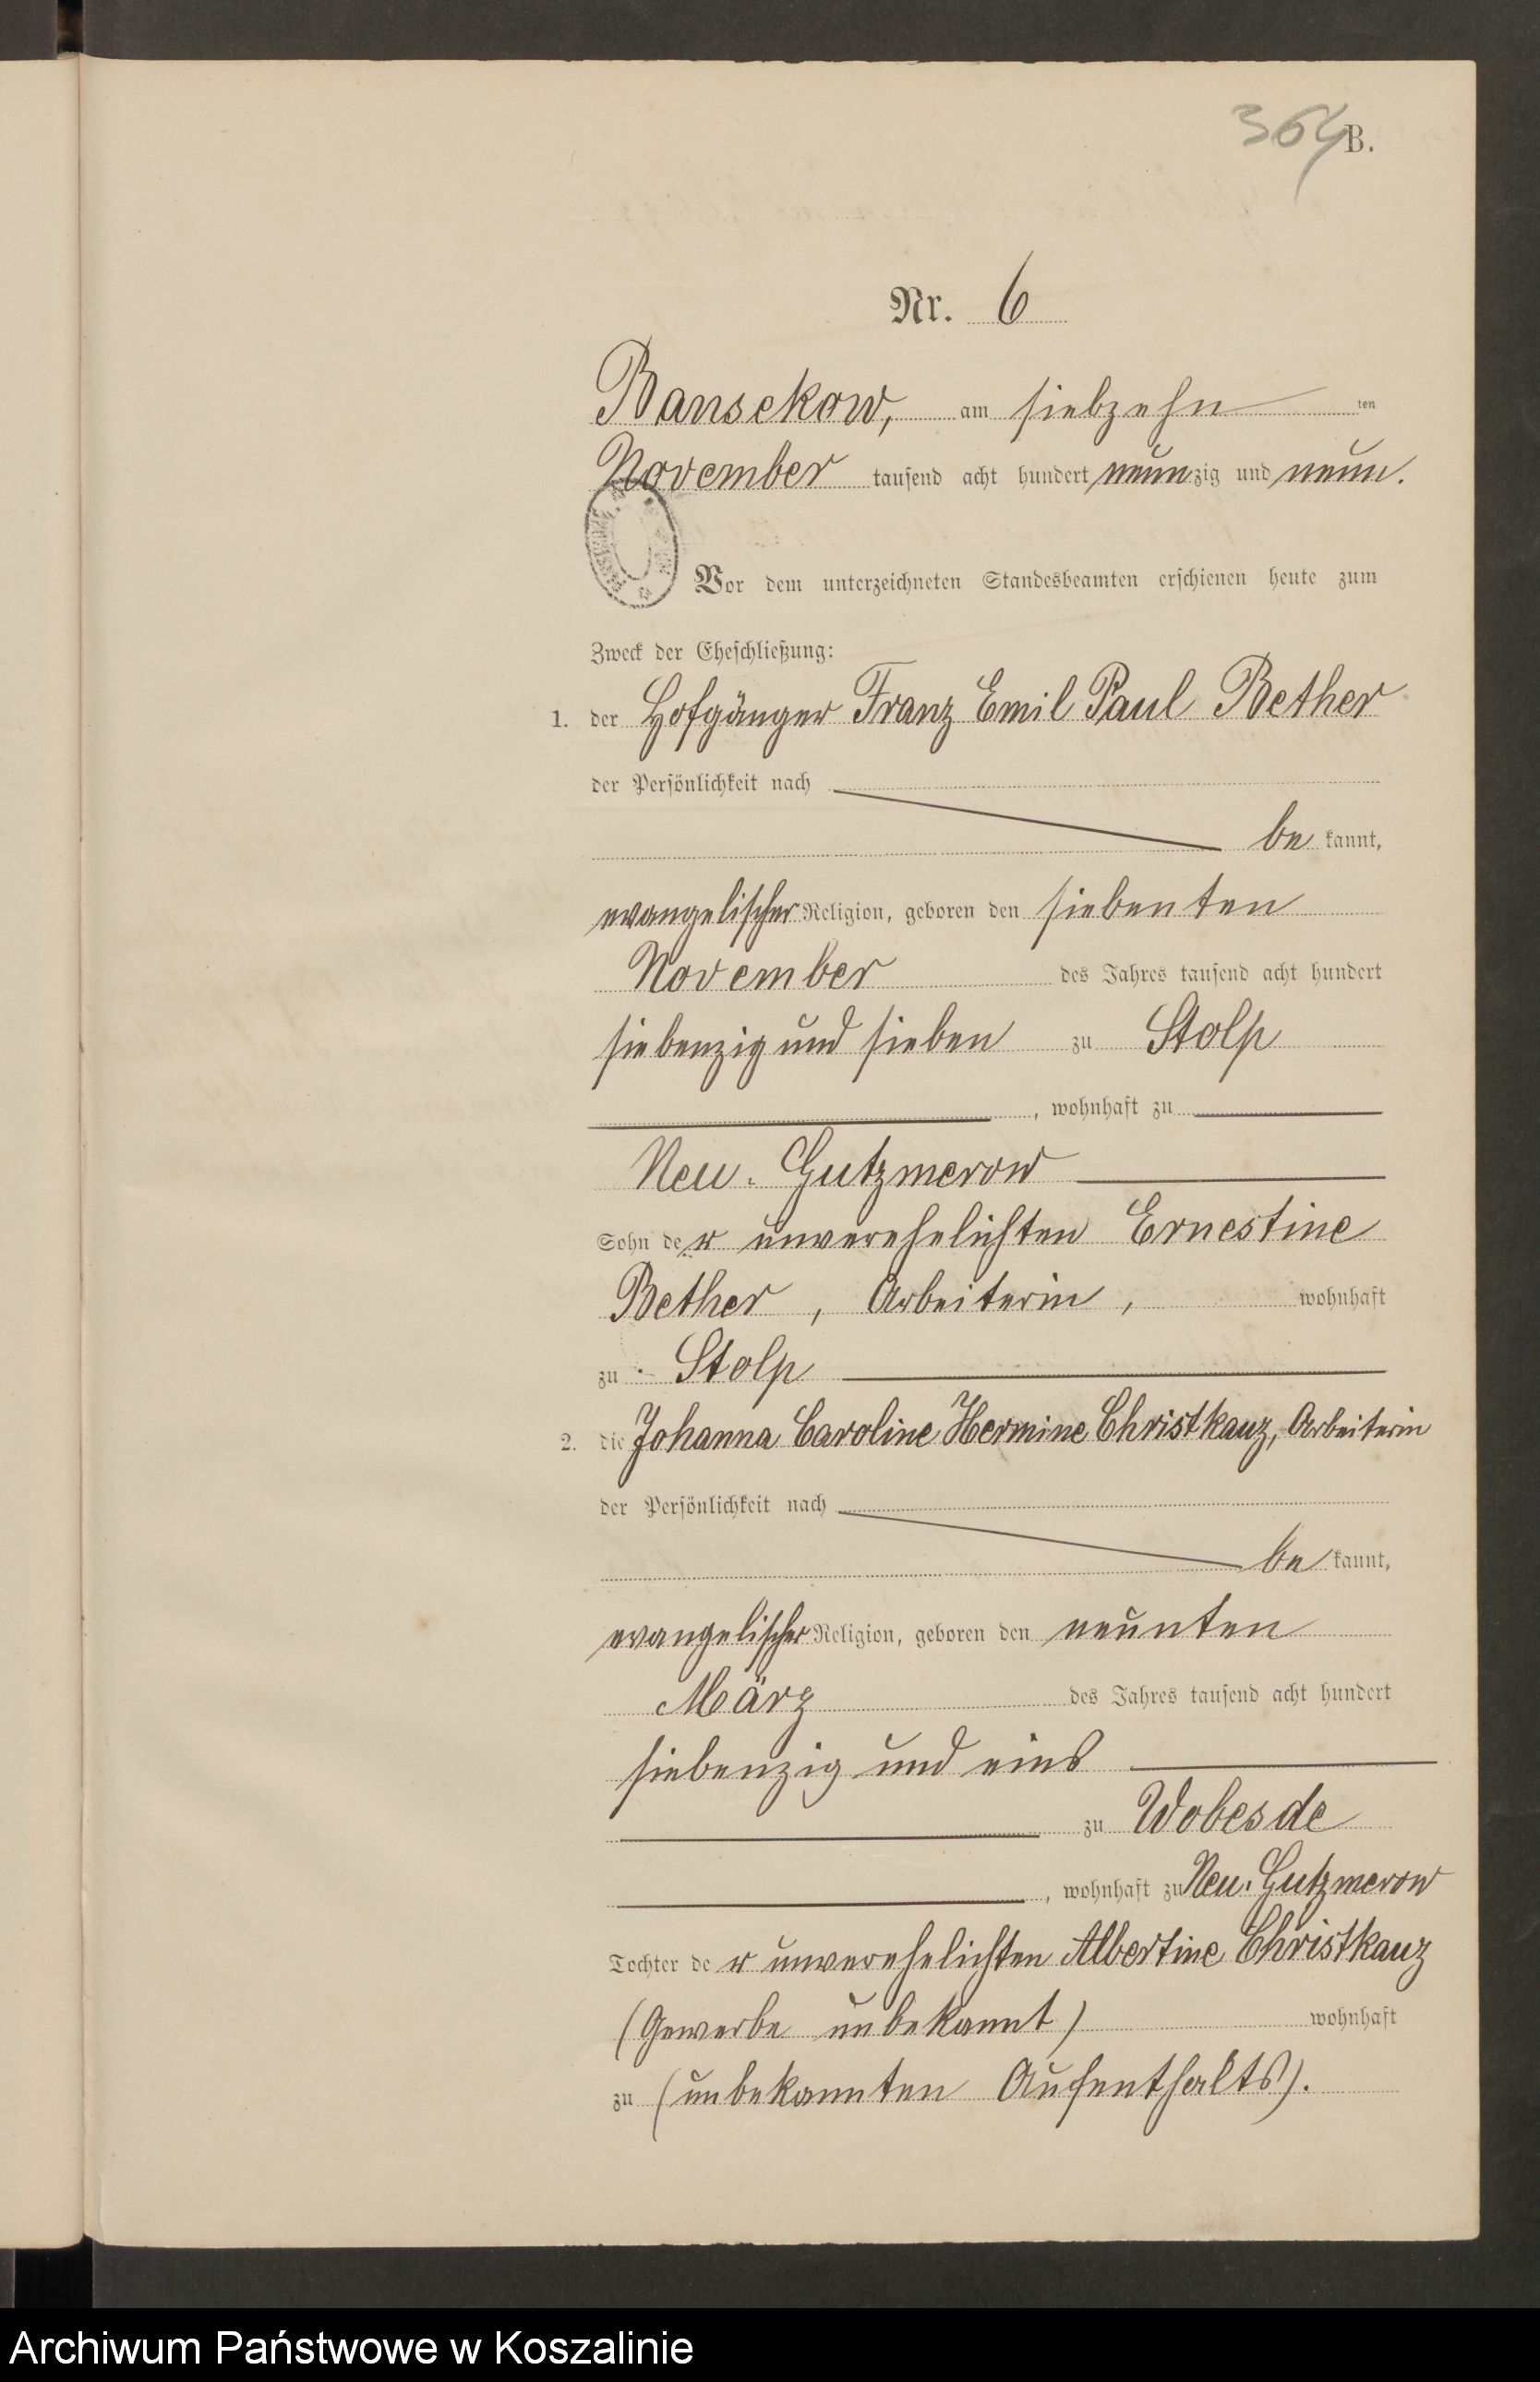 364 B.
Nr. 6
Bansekow, am siebzehn ten
November tausend acht hundert neunzig und neun.
Vor dem unterzeichneten Standesbeamten erschienen heute zum
Zweck der Eheschließung:
1. der Hofgänger Franz Emil Paul Bether
der Persönlichkeit nach
be kannt,
evangelischer Religion, geboren den siebenten
November des Jahres tausend acht hundert
siebenzig und sieben zu Stolp
, wohnhaft zu
Neu-Gutzmerow
Sohn der unverehelichten Ernestine
Bether, Arbeiterin, wohnhaft
zu Stolp
2. die Johanna Caroline Hermine Christkauz, Arbeiterin
der Persönlichkeit nach
be kannt,
evangelischer Religion, geboren den neunten
März des Jahres tausend acht hundert
siebenzig und eins
zu Wobesde
, wohnhaft zu Neu-Gutzmerow
Tochter der unverehelichten Albertine Christkauz
(Gewerbe unbekannt) wohnhaft
zu (unbekannten Aufenthalts).
Archiwum Państwowe w Koszalinie